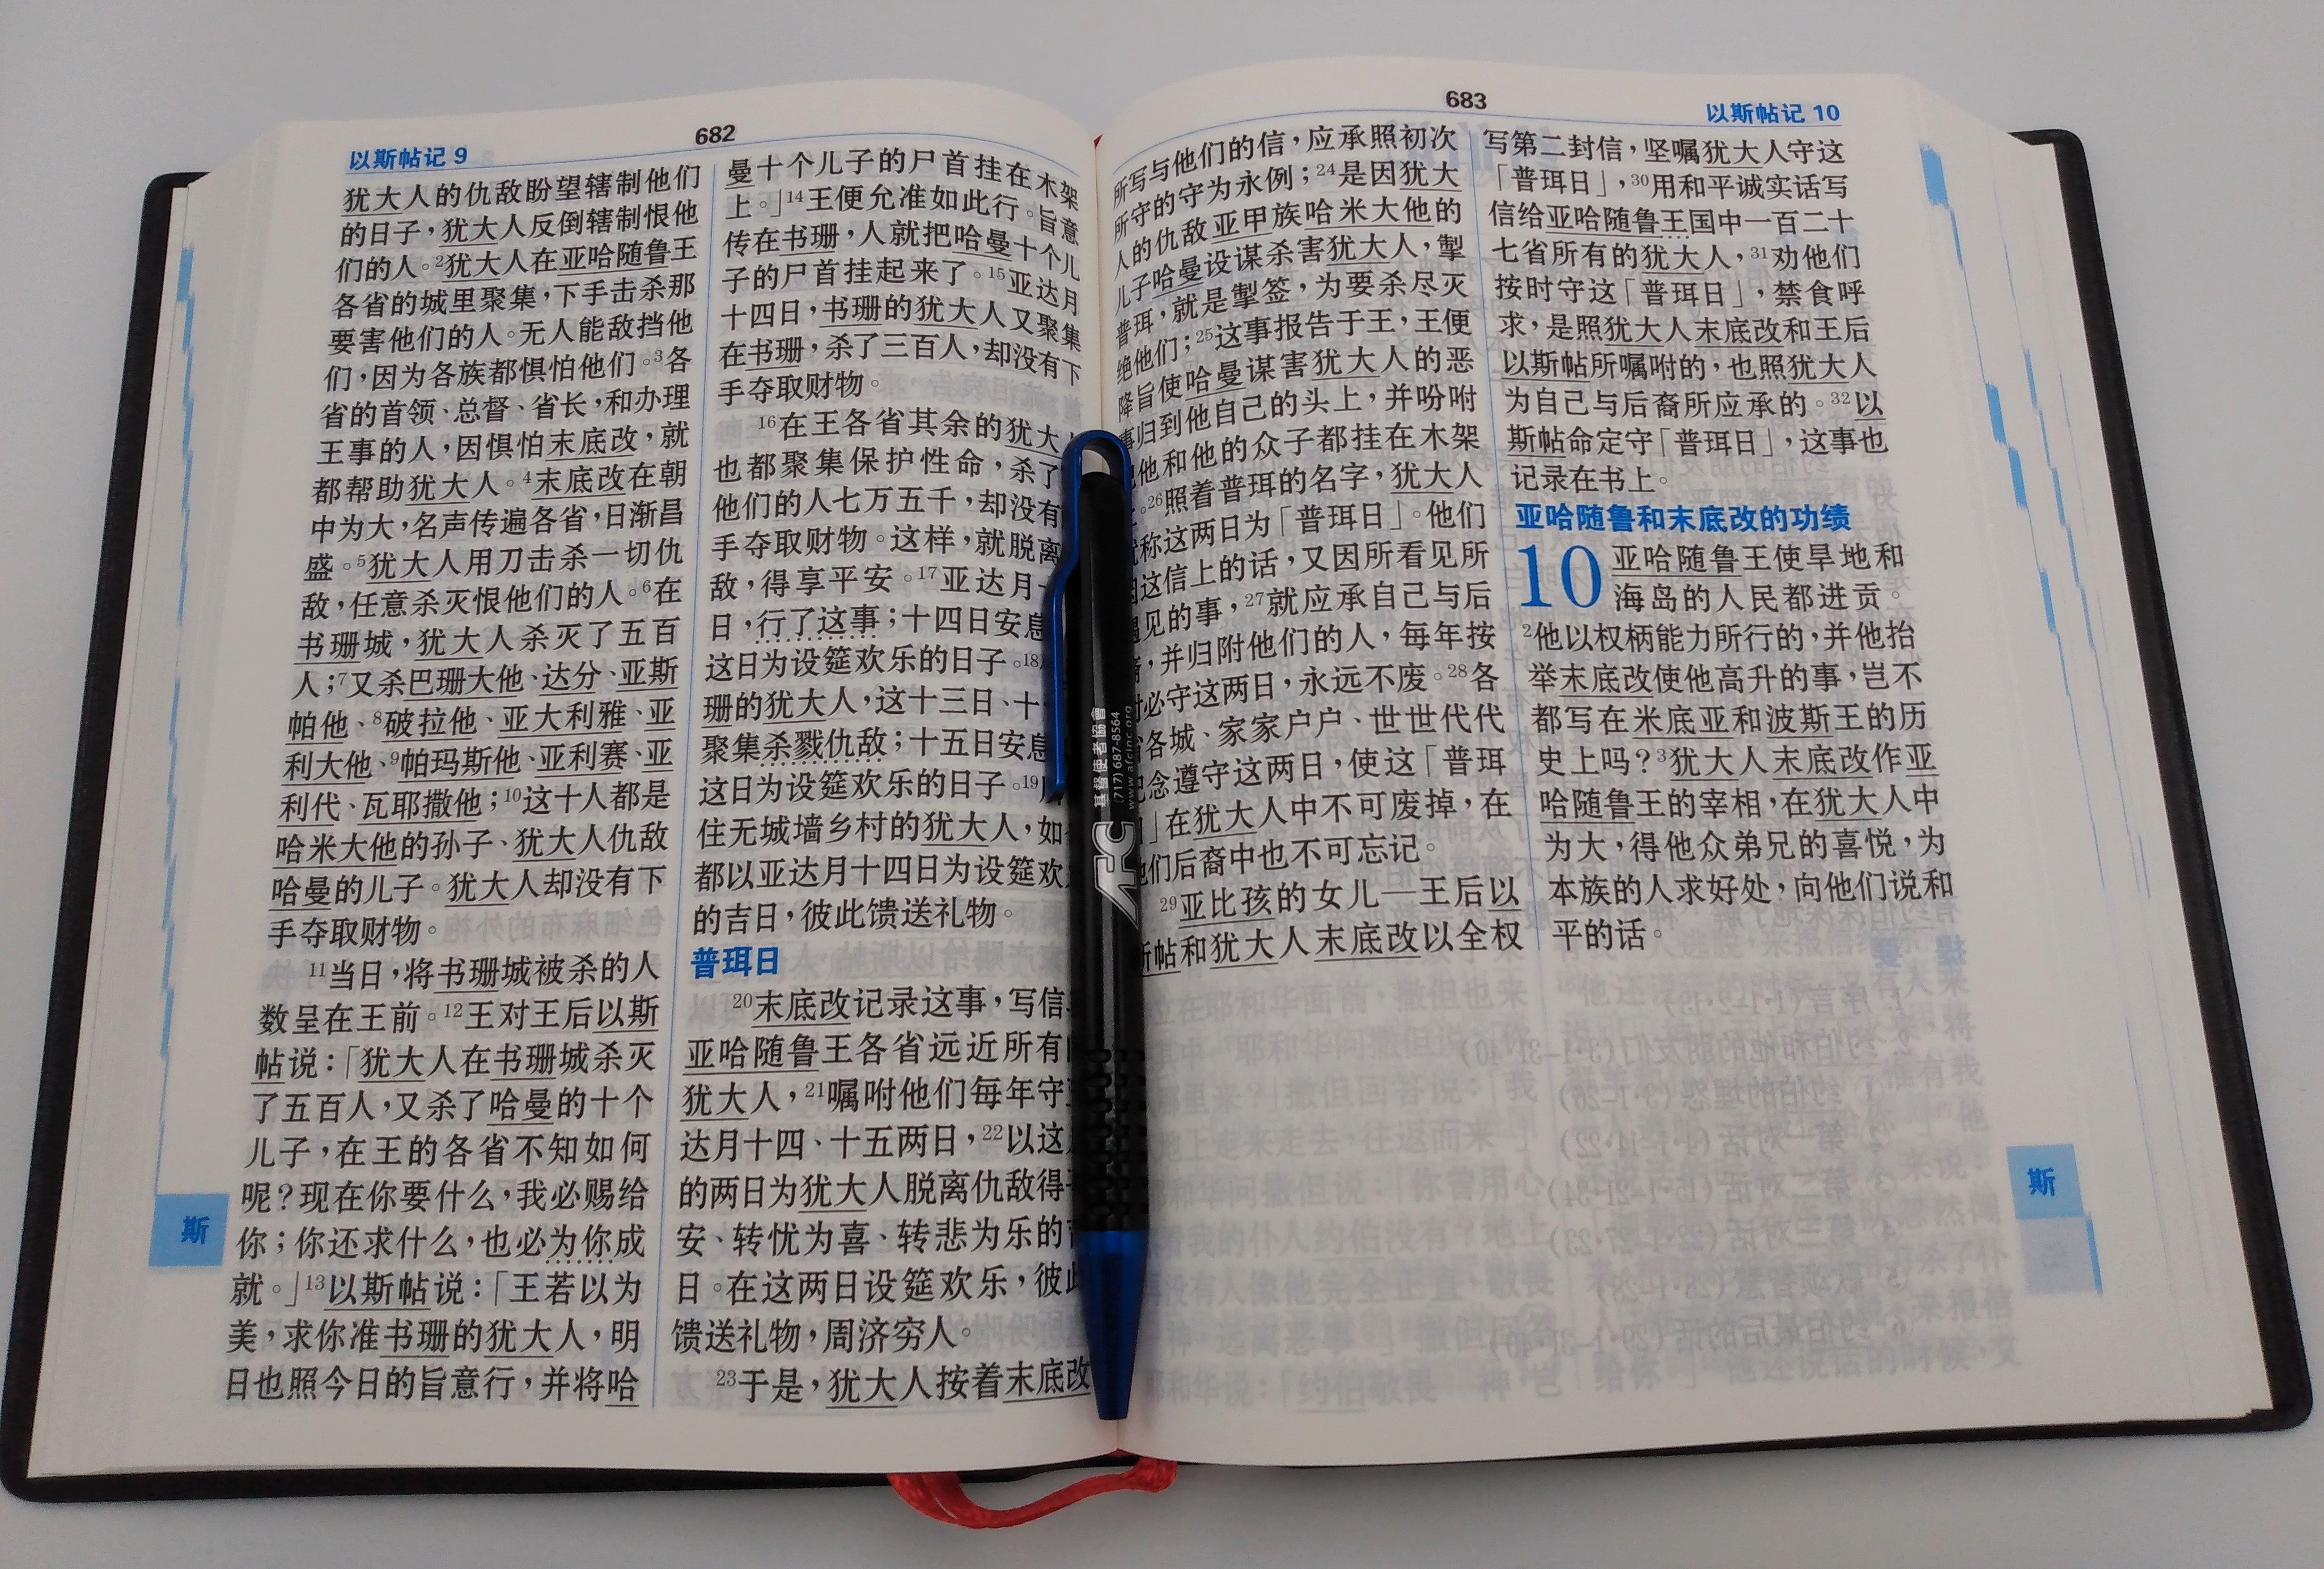 以斯帖记 9
682
犹大人的仇敌盼望辖制他们
的日子，犹大人反倒辖制恨他
们的人。²犹大人在亚哈随鲁王
各省的城里聚集，下手击杀那
要害他们的人。无人能敌挡他
们，因为各族都惧怕他们。³各
省的首领、总督、省长，和办理
王事的人，因惧怕末底改，就
都帮助犹大人。⁴末底改在朝
中为大，名声传遍各省，日渐昌
盛。⁵犹大人用刀击杀一切仇
敌，任意杀灭恨他们的人。⁶在
书珊城，犹大人杀灭了五百
人；⁷又杀巴珊大他、达分、亚斯
帕他、⁸破拉他、亚大利雅、亚
利大他、⁹帕玛斯他、亚利赛、亚
利代、瓦耶撒他；¹⁰这十人都是
哈米大他的孙子、犹大人仇敌
哈曼的儿子。犹大人却没有下
手夺取财物。
¹¹当日，将书珊城被杀的人
数呈在王前。¹²王对王后以斯
帖说：「犹大人在书珊城杀灭
了五百人，又杀了哈曼的十个
儿子，在王的各省不知如何
呢？现在你要什么，我必赐给
你；你还求什么，也必为你成
就。」¹³以斯帖说：「王若以为
美，求你准书珊的犹大人，明
日也照今日的旨意行，并将哈
曼十个儿子的尸首挂在木架
上。」¹⁴王便允准如此行。旨意
传在书珊，人就把哈曼十个儿
子的尸首挂起来了。¹⁵亚达月
十四日，书珊的犹大人又聚集
在书珊，杀了三百人，却没有下
手夺取财物。
¹⁶在王各省其余的犹大
也都聚集保护性命，杀了
他们的人七万五千，却没有
手夺取财物。这样，就脱离
敌，得享平安。¹⁷亚达月
日，行了这事；十四日安息
这日为设筵欢乐的日子。¹⁸
珊的犹大人，这十三日、十
聚集杀戮仇敌；十五日安息
这日为设筵欢乐的日子。¹⁹
住无城墙乡村的犹大人，如
都以亚达月十四日为设筵欢
的吉日，彼此馈送礼物。
普珥日
²⁰末底改记录这事，写信
亚哈随鲁王各省远近所有
犹大人，²¹嘱咐他们每年守
达月十四、十五两日，²²以这
的两日为犹大人脱离仇敌得
安、转忧为喜、转悲为乐的
日。在这两日设筵欢乐，彼此
馈送礼物，周济穷人。
²³于是，犹大人按着末底改
斯
683
以斯帖记 10
所写与他们的信，应承照初次
所守的守为永例；²⁴是因犹大
人的仇敌亚甲族哈米大他的
儿子哈曼设谋杀害犹大人，掣
普珥，就是掣签，为要杀尽灭
绝他们；²⁵这事报告于王，王便
降旨使哈曼谋害犹大人的恶
事归到他自己的头上，并吩咐
他和他的众子都挂在木架
。²⁶照着普珥的名字，犹大人
称这两日为「普珥日」。他们
这信上的话，又因所看见所
遇见的事，²⁷就应承自己与后
，并归附他们的人，每年按
必守这两日，永远不废。²⁸各
各城、家家户户、世世代代
念遵守这两日，使这「普珥
」在犹大人中不可废掉，在
们后裔中也不可忘记。
²⁹亚比孩的女儿—王后以
斯帖和犹大人末底改以全权
写第二封信，坚嘱犹大人守这
「普珥日」，³⁰用和平诚实话写
信给亚哈随鲁王国中一百二十
七省所有的犹大人，³¹劝他们
按时守这「普珥日」，禁食呼
求，是照犹大人末底改和王后
以斯帖所嘱咐的，也照犹大人
为自己与后裔所应承的。³²以
斯帖命定守「普珥日」，这事也
记录在书上。
亚哈随鲁和末底改的功绩
10 亚哈随鲁王使旱地和
海岛的人民都进贡。
²他以权柄能力所行的，并他抬
举末底改使他高升的事，岂不
都写在米底亚和波斯王的历
史上吗？³犹大人末底改作亚
哈随鲁王的宰相，在犹大人中
为大，得他众弟兄的喜悦，为
本族的人求好处，向他们说和
平的话。
斯
AFC
基督使者協會
(717) 687-8564
www.afcinc.org